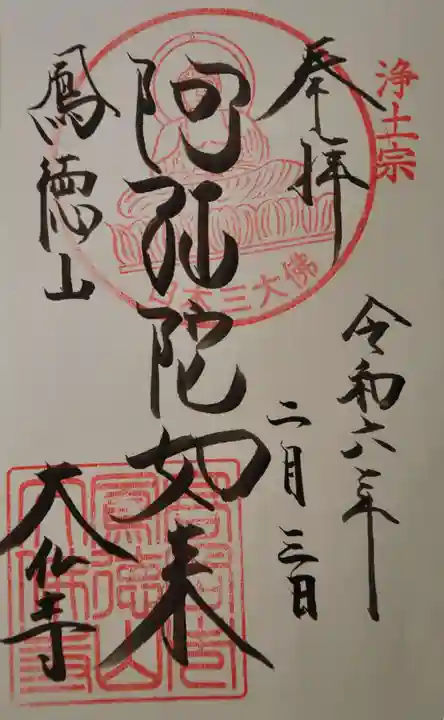 浄土宗
奉拝
令和六年
二月三日
阿弥陀如来
日本三大佛
鳳徳山
大仏寺